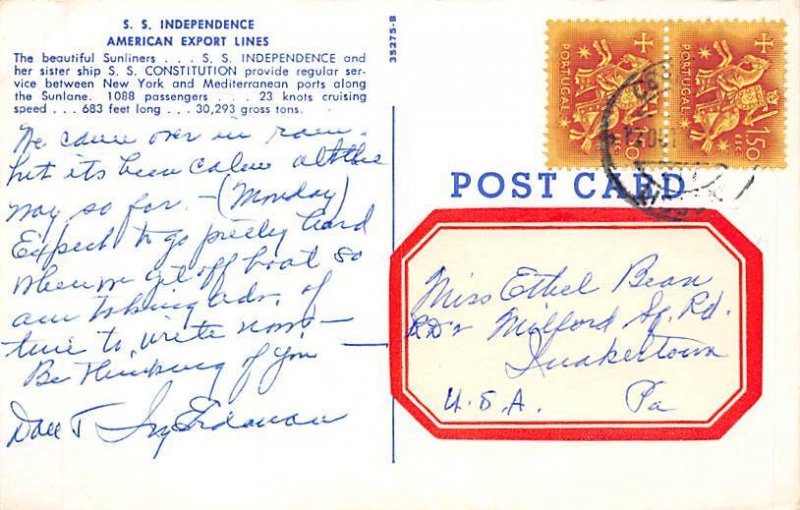 S. S. INDEPENDENCE
AMERICAN EXPORT LINES
The beautiful Sunliners . . . S. S. INDEPENDENCE and
her sister ship S. S. CONSTITUTION provide regular ser-
vice between New York and Mediterranean ports along
the Sunlane. 1088 passengers . . . 23 knots cruising
speed . . . 683 feet long . . . 30,293 gross tons.
We came over in rain.
but its been calm all the
way so far. – (Monday)
Expect to go pretty hard
when we get off boat so
am taking adv. of
time to write now –
Be thinking of you
35275-B
PORTUGAL
1$50
ESC
PORTUGAL
1$50
ESC
POST CARD
Miss Ethel Bean
RD 2 Milford Sq. Rd.
Quakertown
U.S.A. Pa